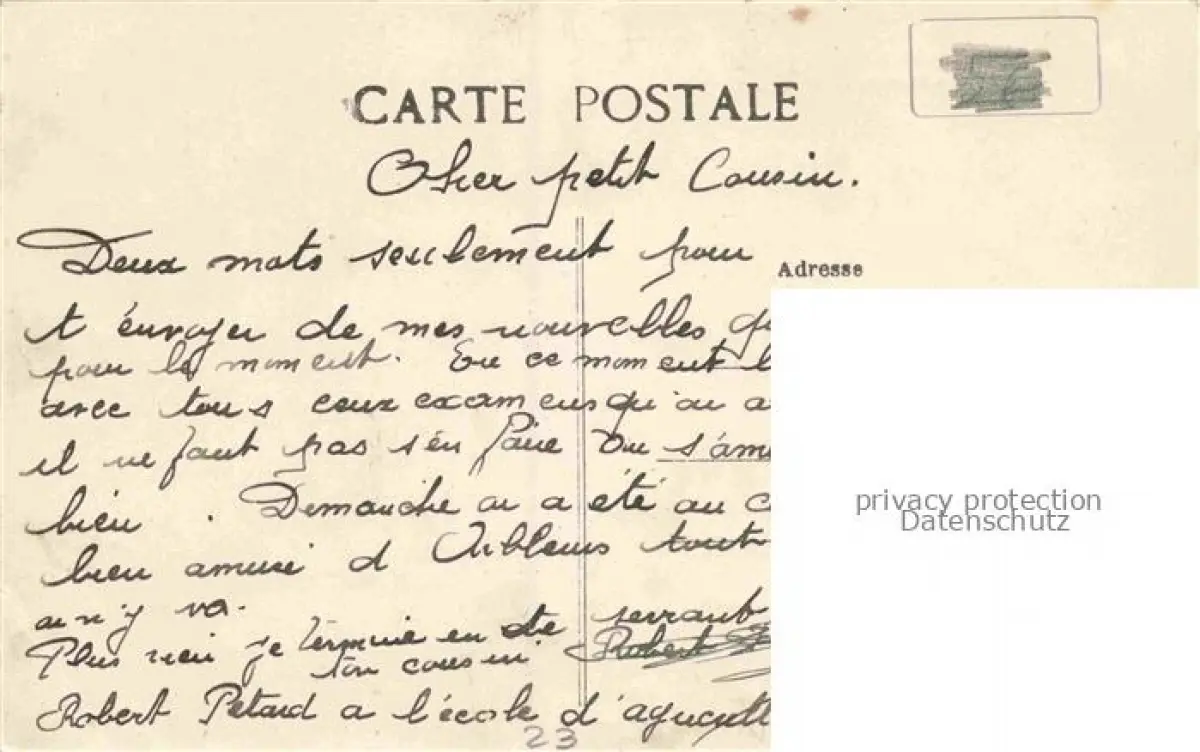 CARTE POSTALE
Cher petit Cousin.
Deux mots seulement pour
Adresse
t'envoyer de mes nouvelles
pour le moment. En ce moment
avec tous ceux examens qu'on a
il ne faut pas s'en faire On
bien. Demanche on a été au
bien amusé d'Ailleurs tout
on n'y va.
Plus rien je termine en te serrant
ton cousin. Robert
Robert Petard a l'école d'
23
privacy protection
Datenschutz